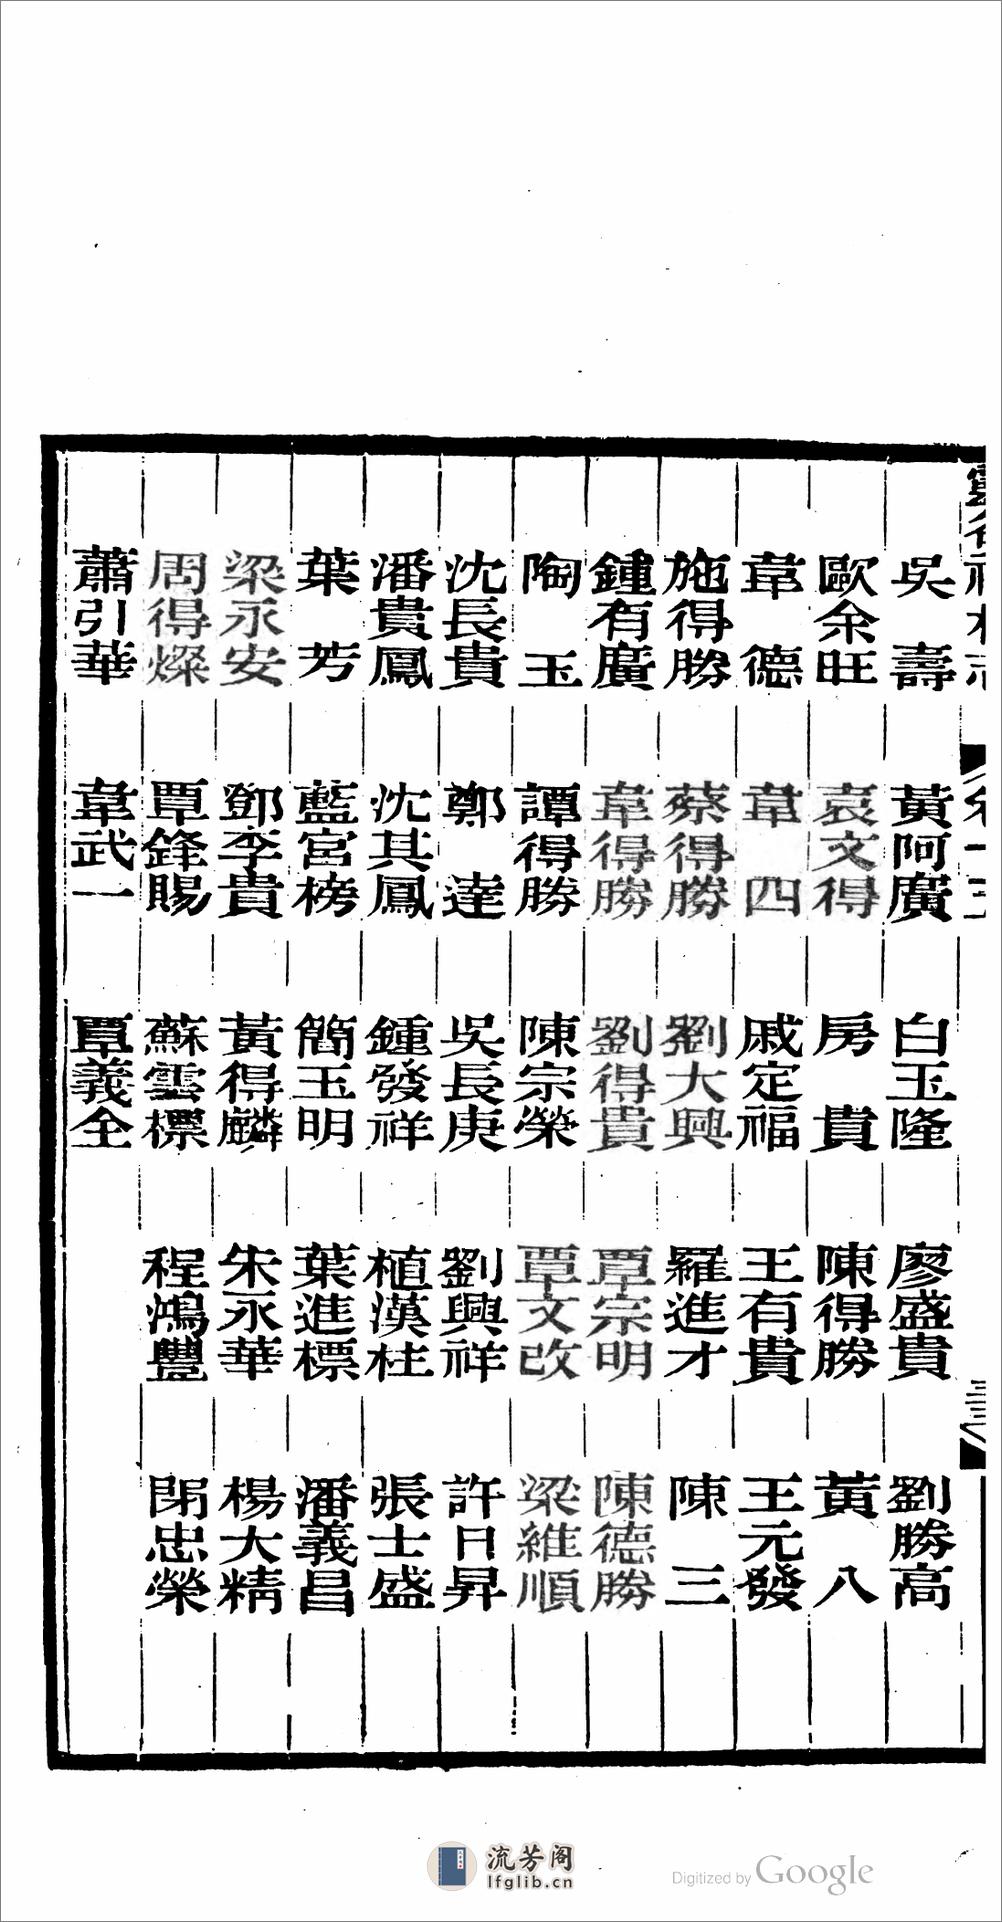 吳壽 黃阿廣 白玉隆 廖盛貴 劉勝高
歐余旺 袁文得 房貴 陳得勝 黃八
韋德 韋四 戚定福 王有貴 王元發
施得勝 蔡得勝 劉大興 羅進才 陳三
鍾有廣 韋得勝 劉得貴 覃宗明 陳德勝
陶玉 譚得勝 陳宗榮 覃文改 梁維順
沈長貴 鄭達 吳長庚 劉興祥 許日昇
潘貴鳳 沈其鳳 鍾發祥 植漢柱 張士盛
葉芳 藍宮榜 簡玉明 葉進標 潘義昌
梁永安 鄧李貴 黃得麟 朱永華 楊大精
周得燦 覃鋒賜 蘇雲標 程鴻豐 閉忠榮
蕭引華 韋武一 覃義全
流芳阁
lfglib.cn
Digitized by Google